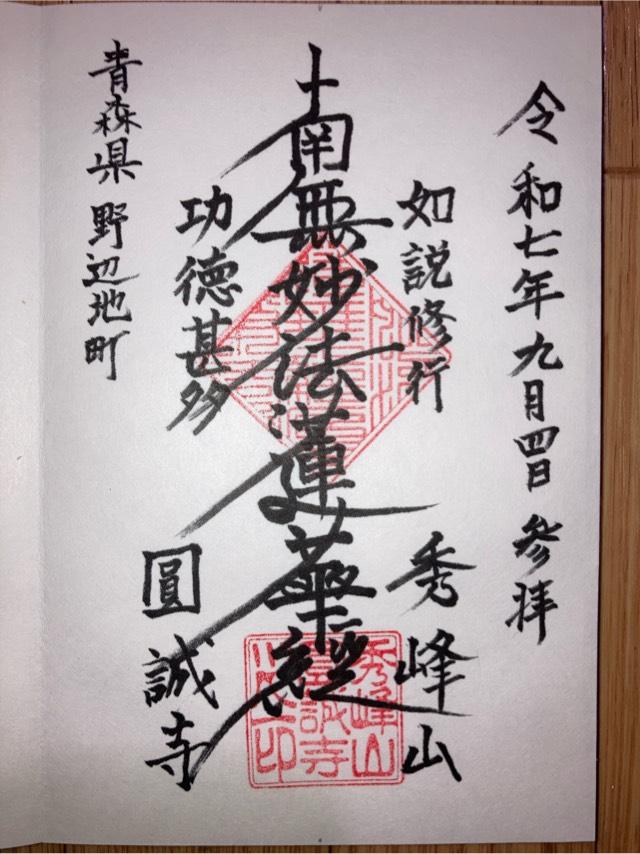 令和七年九月四日 参拝
如説修行
秀峰山
南無妙法蓮華経
功徳甚多
圓誠寺
青森県 野辺地町
秀峰山
圓誠寺
之印